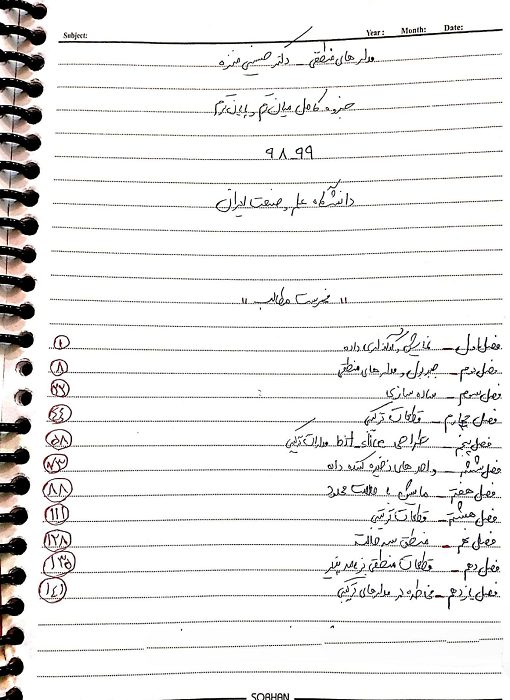 Subject: Year: Month: Date:
مدارهای منطقی - دکتر حسینی منزه
جزوه کامل میان‌ترم و پایان‌ترم
۹۸_۹۹
دانشگاه علم و صنعت ایران
"فهرست مطالب"
فصل اول - نمایش و کدگذاری داده ۱
فصل دوم - جبر بول و مدارهای منطقی ۸
فصل سوم - ساده سازی
فصل چهارم - قطعات ترکیبی ۴۴
فصل پنجم - طراحی bit_slice مدارات ترکیبی ۵۸
فصل ششم - واحدهای ذخیره کننده داده ۷۳
فصل هفتم - ماشین با حالت محدود ۸۸
فصل هشتم - قطعات ترتیبی ۱۱۱
فصل نهم - منطق سه حالت ۱۲۸
فصل دهم - قطعات منطقی برنامه پذیر ۱۳۵
فصل یازدهم - مخاطره در مدارهای ترکیبی ۱۴۱
SOBHAN